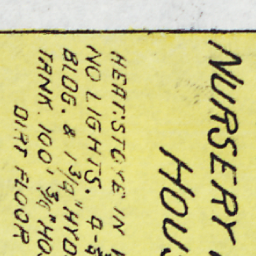 NURSERY
HOUS
HEAT:STOVE IN
NO LIGHTS. 4-
BLDG. & 1 3/4" HYD
TANK. 100', 3/4" HO
DIRT FLOOR